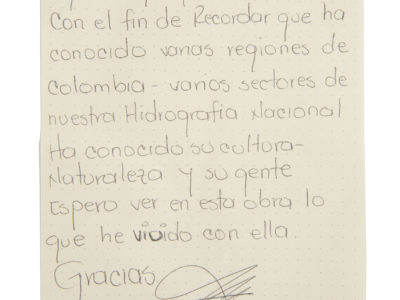 Con el fin de Recordar que ha
conocido varias regiones de
Colombia - varios sectores de
nuestra Hidrografia Nacional
Ha conocido su cultura-
Naturaleza y su gente
Espero ver en esta obra lo
que he vivido con ella.
Gracias